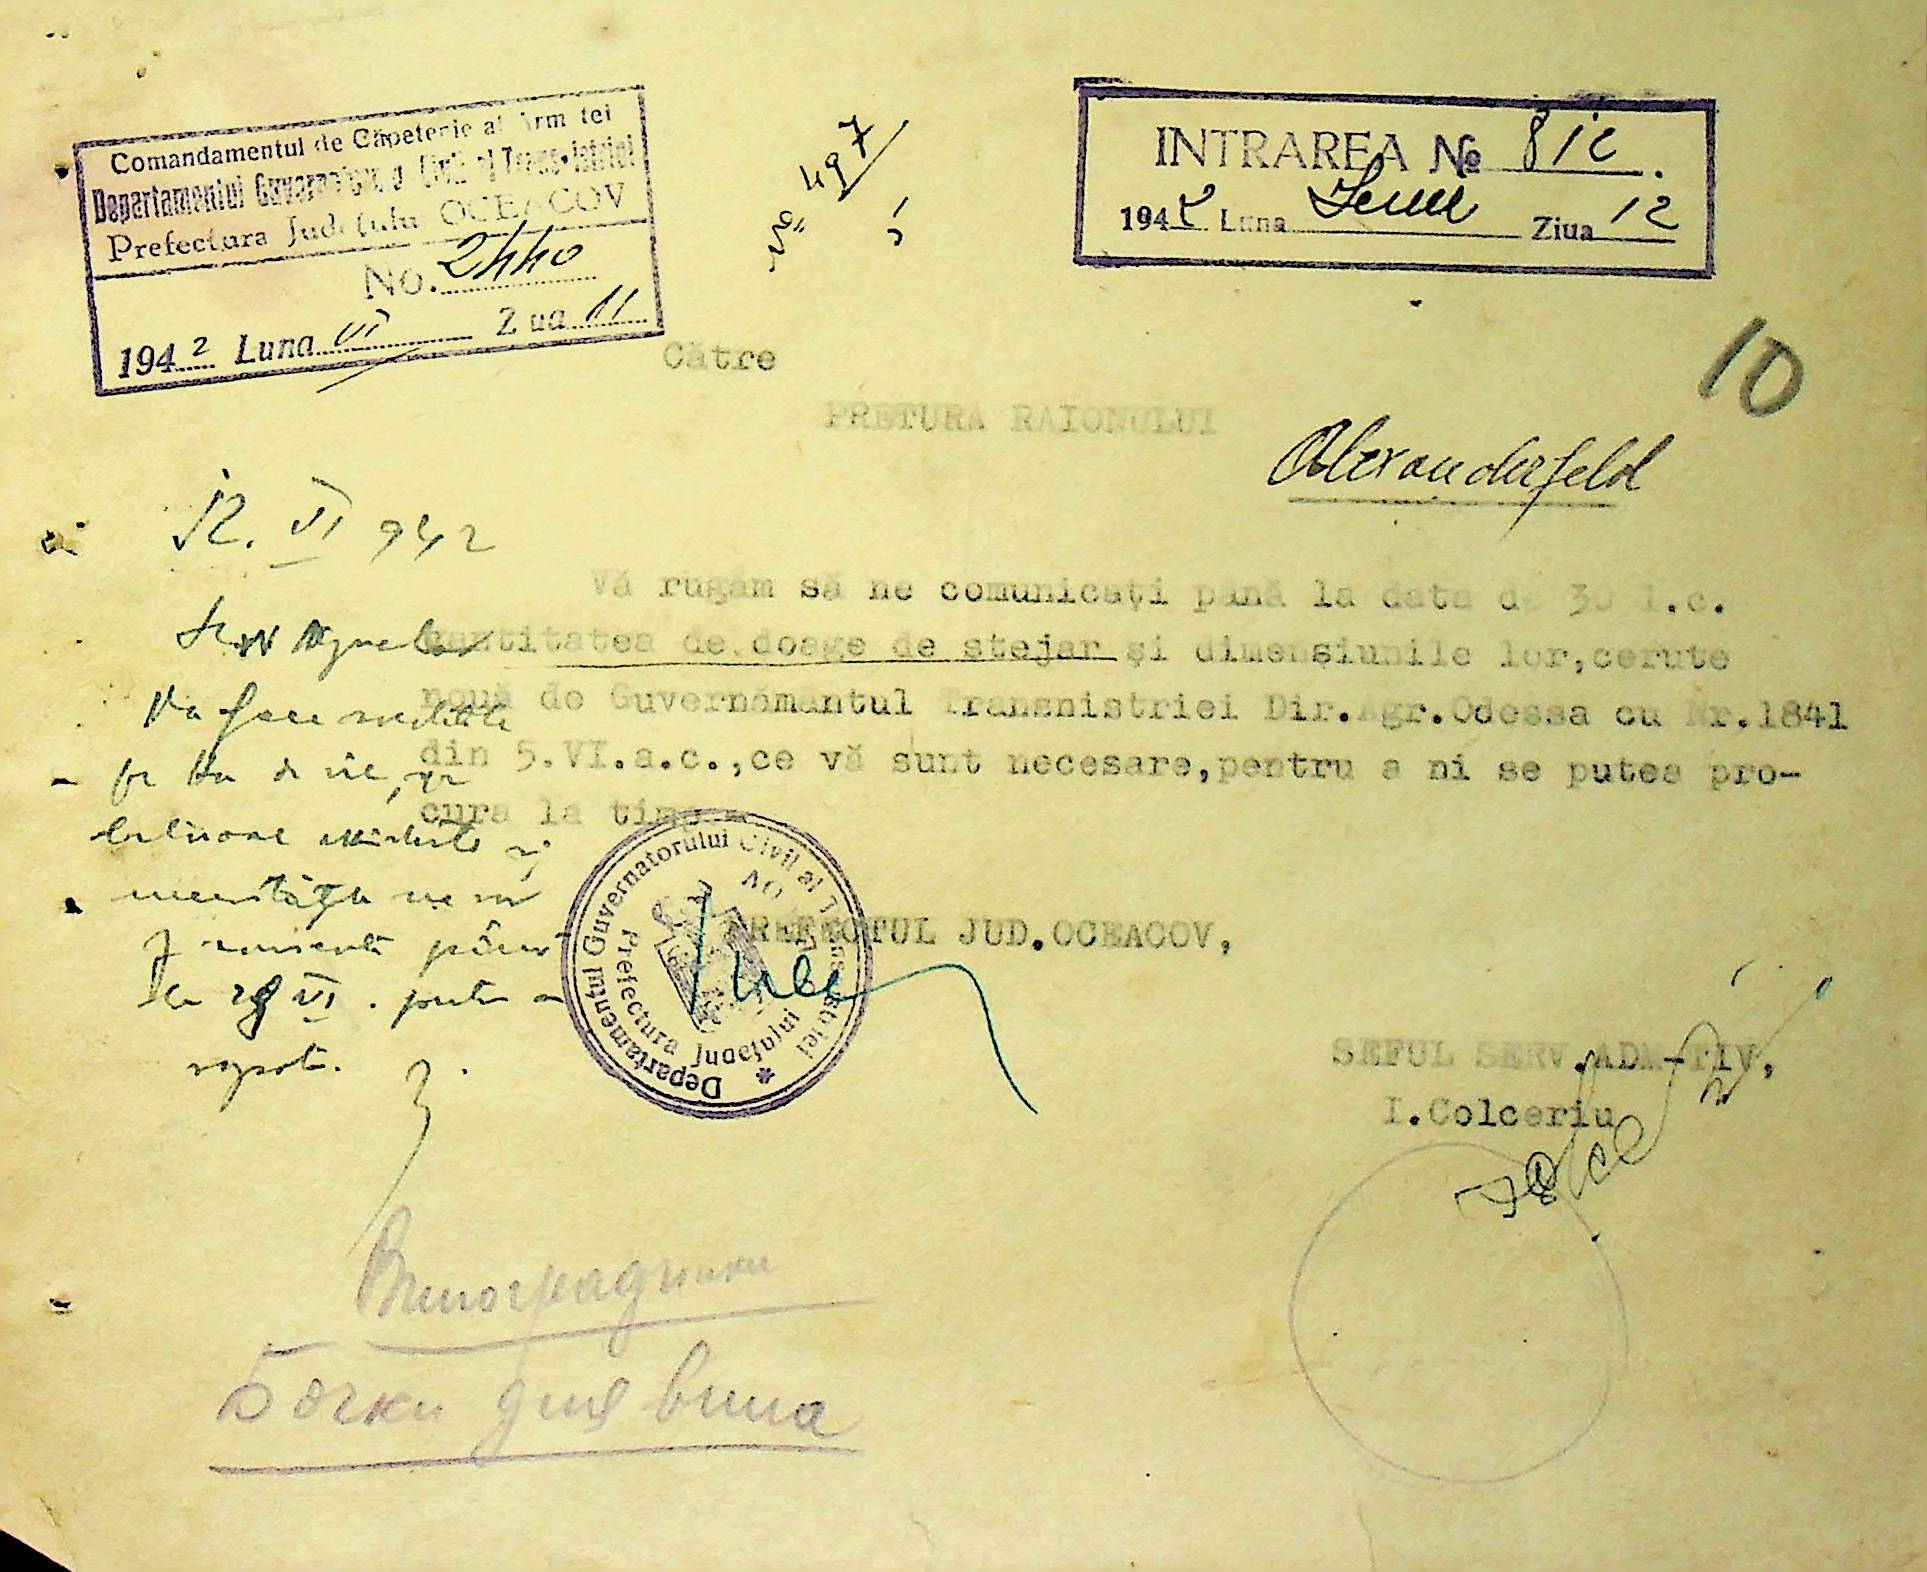 Comandamentul de Căpetenie al Armatei
Departamentul Guvernatorului Civil al Transnistriei
Prefectura Județului OCEACOV
No. 2440
1942 Luna VI Ziua 11
No. 497
INTRAREA No 812.
1942 Luna Iunie Ziua 12
10
Către
PRETURA RAIONULUI
Alexanderfeld
12. VI 942
Vă rugăm să ne comunicați până la data de 30 l.c.
cantitatea de doage de stejar și dimensiunile lor, cerute
nouă de Guvernământul Transnistriei Dir.Agr.Odessa cu Nr.1841
din 5.VI.a.c.,ce vă sunt necesare,pentru a ni se putea pro-
cura la timp.-
Va face
de vie,
existente și
până
la 28 VI. pentru a
raporta.
Departamentul Guvernatorului Civil al Transnistriei
Prefectura Județului
PREFECTUL JUD.OCEACOV,
SEFUL SERV.ADM-TIV,
I.Colceriu
Виноградники
Бочки для вина